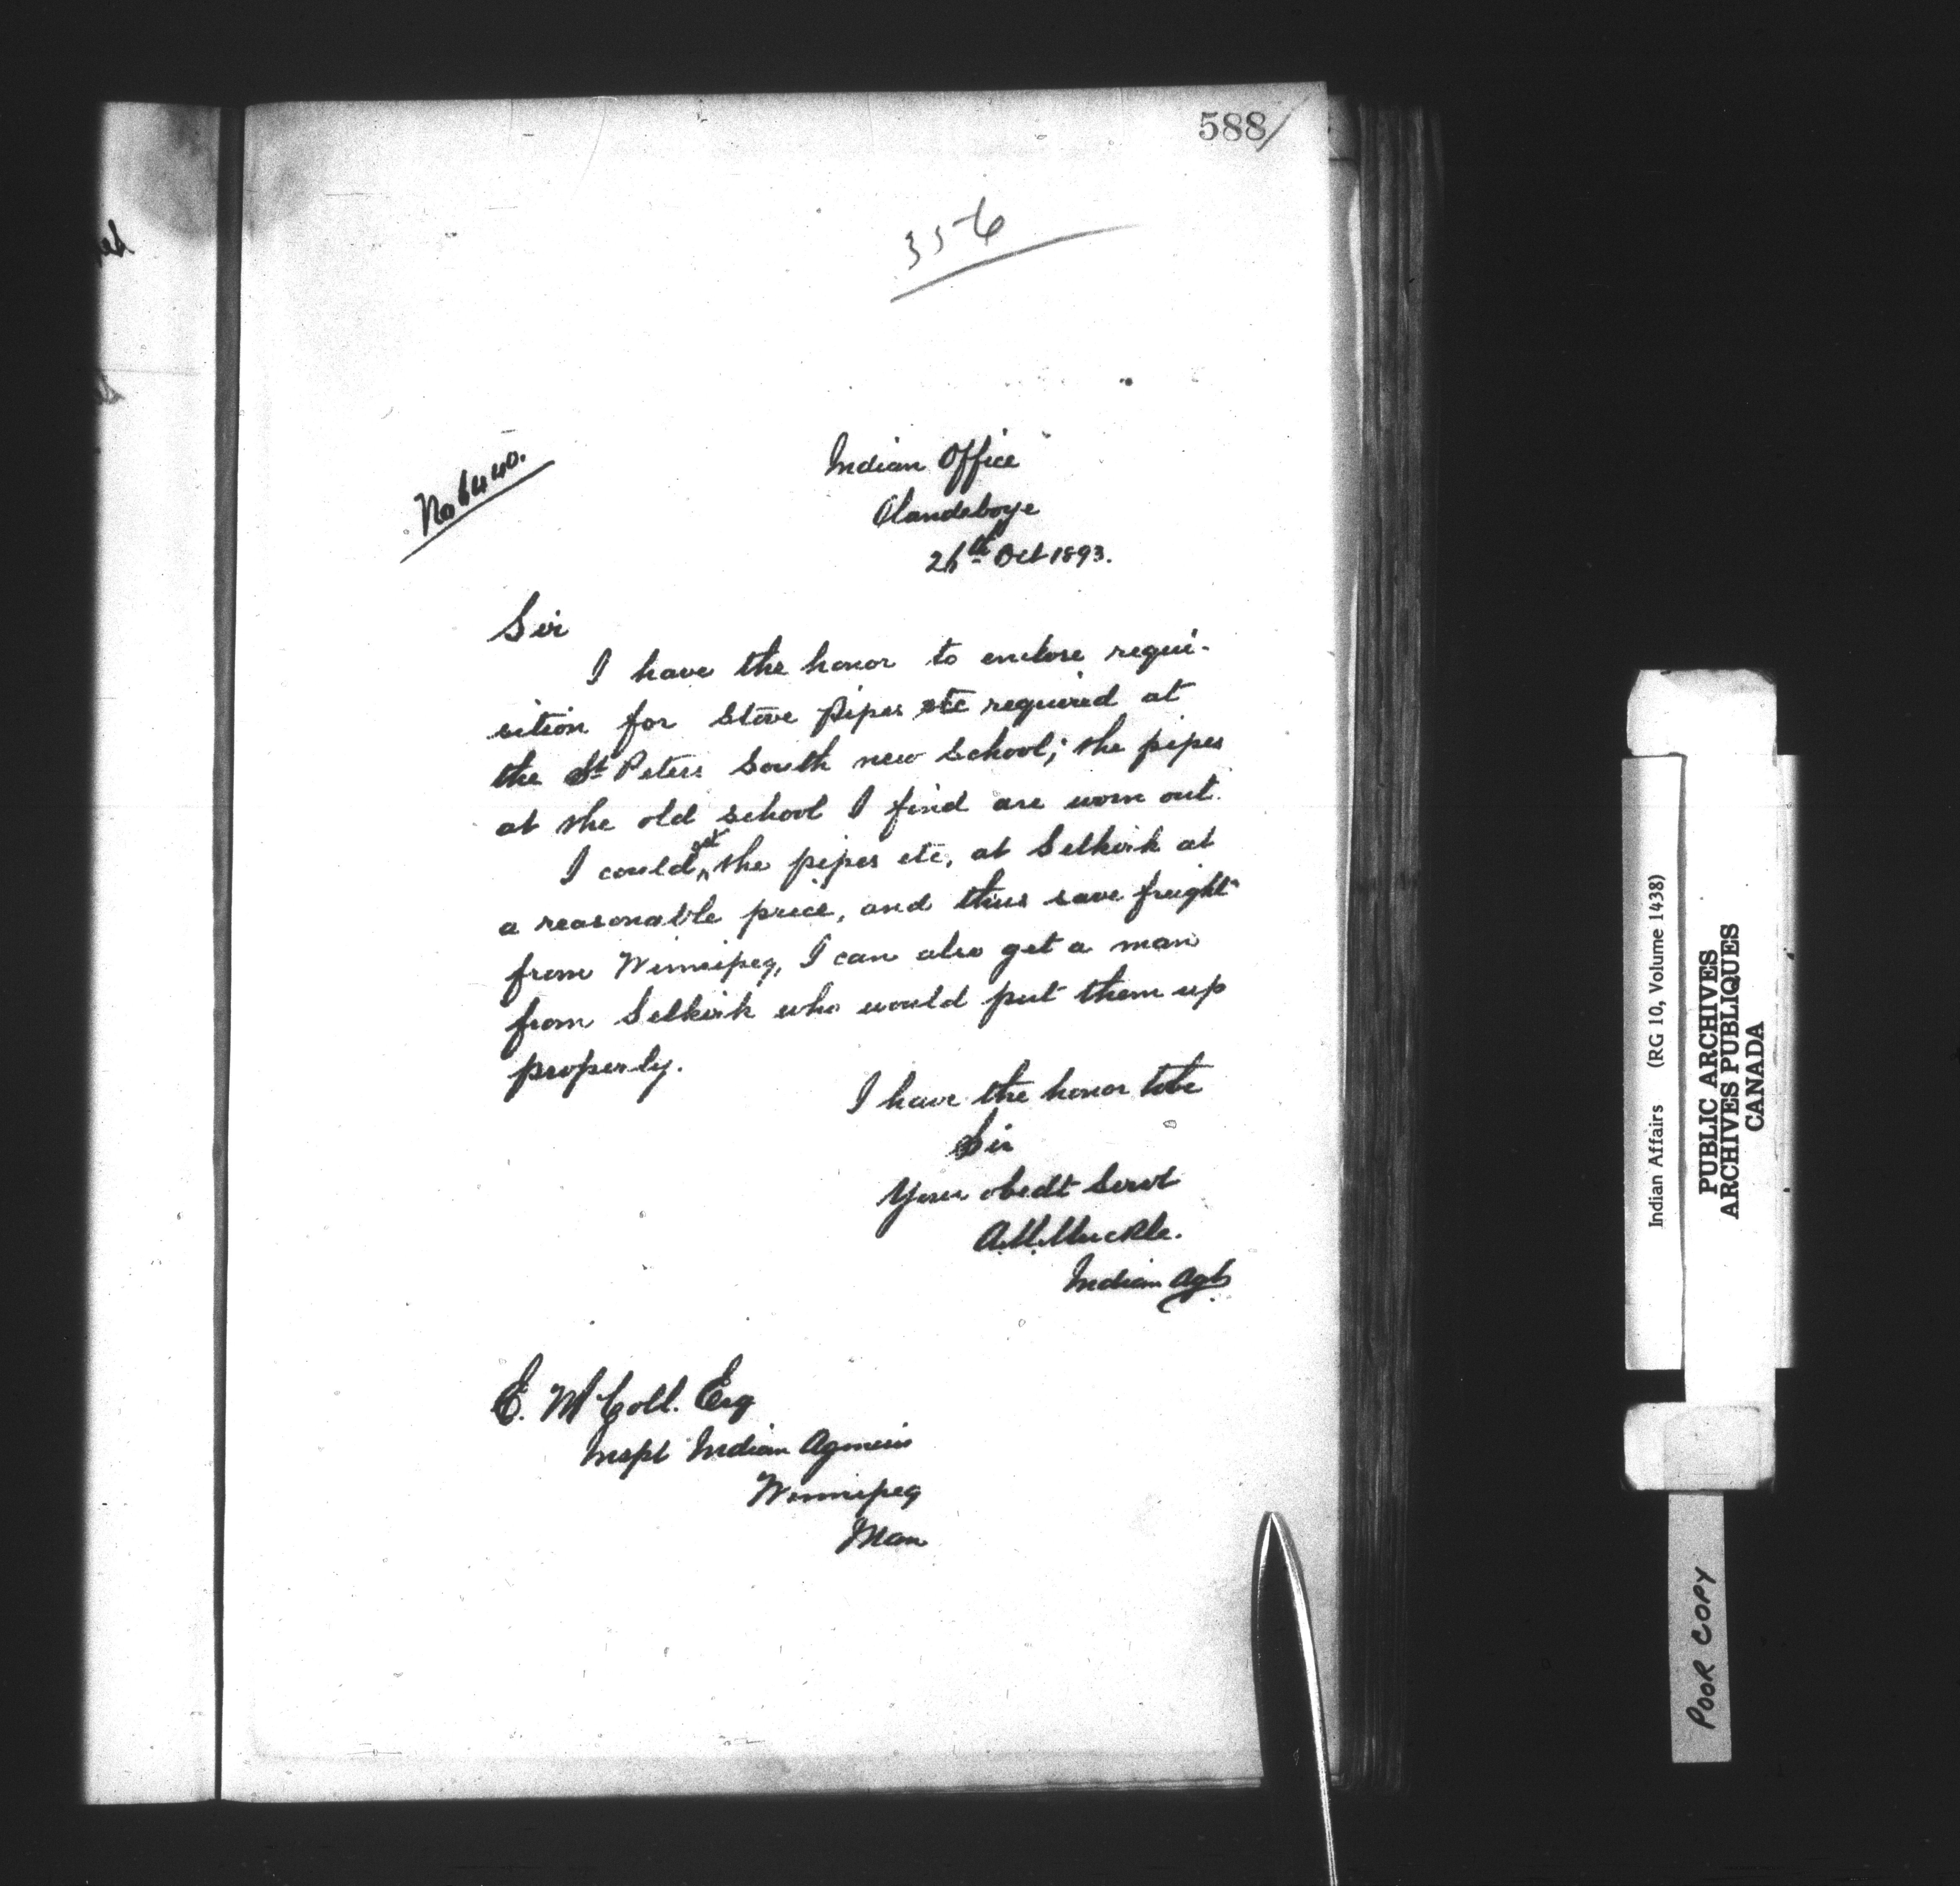 588
356
No 6440.
Indian Office
Clandeboye
26th Oct 1893.
Sir
I have the honor to enclose requi-
sition for Stove pipes etc required at
the St Peters South new School; the pipes
at the old school I find are worn out.
I could get the pipes etc, at Selkirk at
a reasonable price, and thus save freight
from Winnipeg, I can also get a man
from Selkirk who would put them up
properly.
I have the honor to be
Sir
Your obedt Servt
A.M. Muckle.
Indian Agt.
E. McColl. Esq
Inspt Indian Agencies
Winnipeg
Man
Indian Affairs (RG 10, Volume 1438)
PUBLIC ARCHIVES
ARCHIVES PUBLIQUES
CANADA
POOR COPY